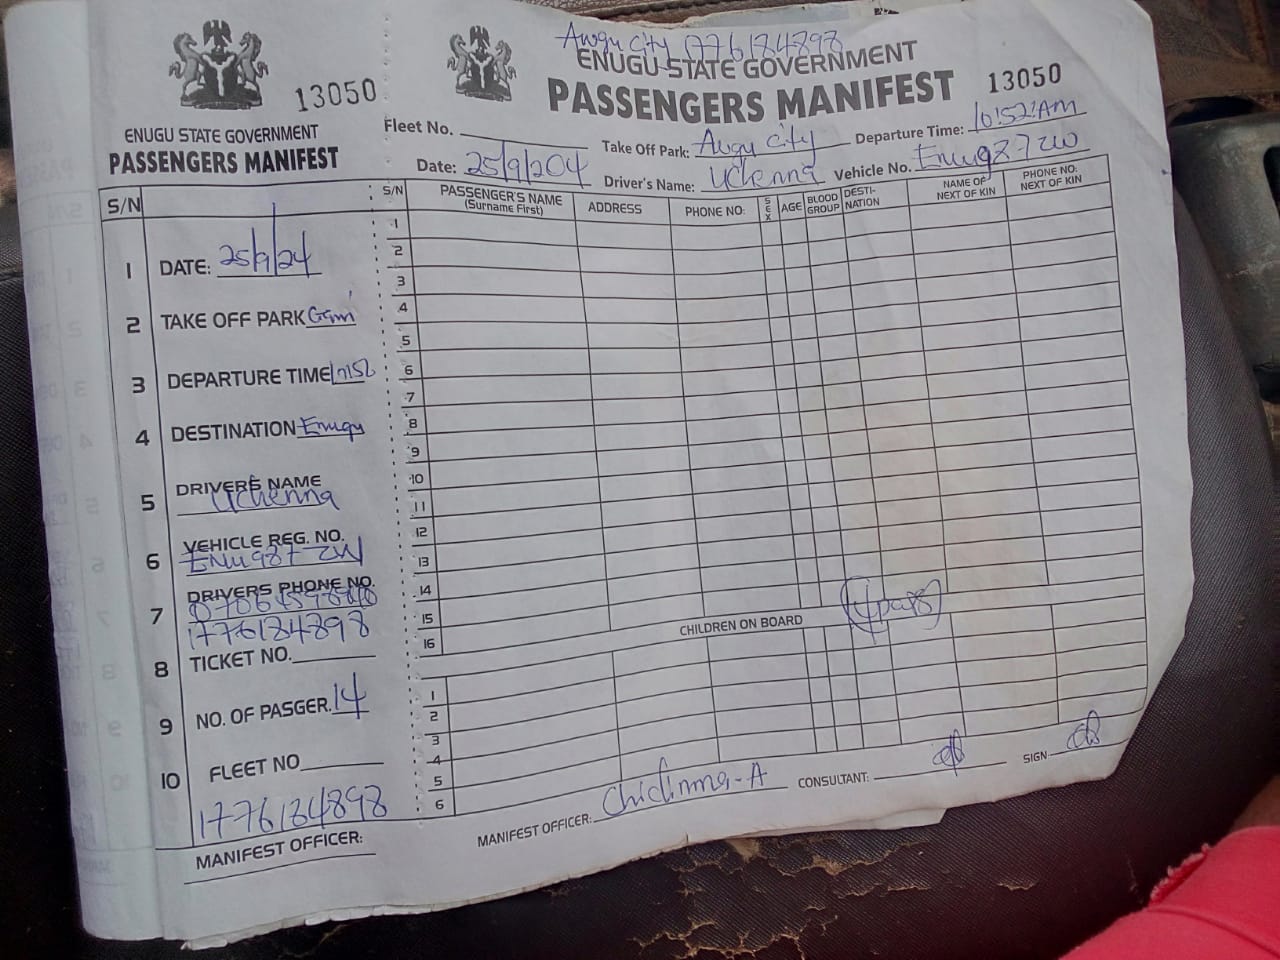 13050
ENUGU STATE GOVERNMENT
PASSENGERS MANIFEST
S/N
1 DATE: 25/9/24
2 TAKE OFF PARK
3 DEPARTURE TIME
4 DESTINATION Enugu
5 DRIVERS NAME
Uchenna
6 VEHICLE REG. NO.
ENU987 ZW
7 DRIVERS PHONE NO.
1776184898
8 TICKET NO.
9 NO. OF PASGER. 14
10 FLEET NO
1776184898
MANIFEST OFFICER:
Awgu City 1776184898
ENUGU STATE GOVERNMENT
PASSENGERS MANIFEST 13050
Fleet No. Take Off Park: Awgu City Departure Time: 10:52:AM
Date: 25/9/204 Driver's Name: Uchenna Vehicle No. Enu987 ZW
S/N PASSENGER'S NAME (Surname First) ADDRESS PHONE NO: SEX AGE BLOOD GROUP DESTI-NATION NAME OF NEXT OF KIN PHONE NO: NEXT OF KIN
1
2
3
4
5
6
7
8
9
10
11
12
13
14
15
16
CHILDREN ON BOARD
1
2
3
4
5
6
MANIFEST OFFICER: Chidinma-A CONSULTANT: SIGN